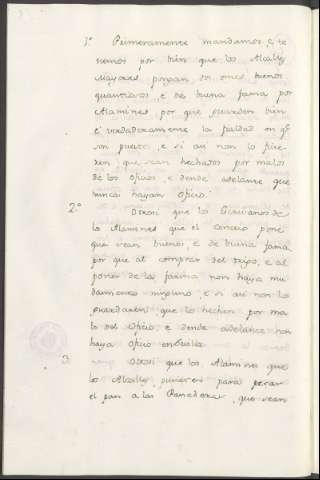 1º Primeramente mandamos, e te
nemos por bien que los Alcalls
Mayores, pongan on omes buenos
quantiosos, e de buena fama por
Alamines, por que guarden bien
e verdaderamente la fialdad en qe
son puestos, e si asi non lo ficie-
ren que sean hechados por malos
de los oficios, e dende adelante que
nunca hayan oficio.
2.º Otrosi que los Escrivanos de
los Alamines que el concejo pone
que sean buenos, e de buena fama
por que al comprar del trigo, e al
poner de la farina non haya mu
damiento ninguno, e si asi non lo
guardaren que lo hechen por ma
lo del oficio, e dende adelante non
haya oficio en Sevilla
3. Otrosi que los Alamines que
los Alcalls pusieren para pesar
el pan a las Panaderas, que sean